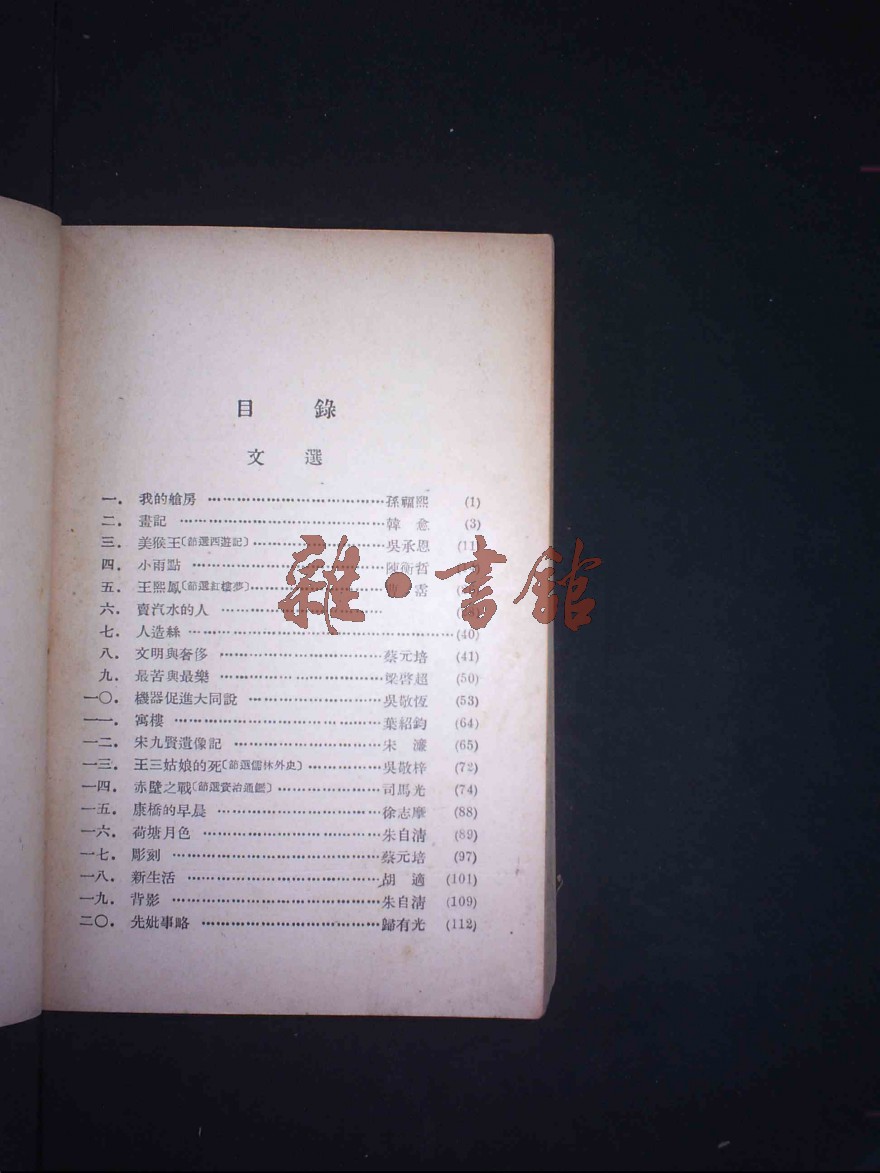 目 錄
文 選
一. 我的艙房 孫福熙 (1)
二. 畫記 韓 愈 (3)
三. 美猴王〔節選西遊記〕 吳承恩 (11)
四. 小雨點 陳衡哲
五. 王熙鳳〔節選紅樓夢〕 霑
六. 賣汽水的人
七. 人造絲 (40)
八. 文明與奢侈 蔡元培 (41)
九. 最苦與最樂 梁啓超 (50)
一〇. 機器促進大同說 吳敬恆 (53)
一一. 寓樓 葉紹鈞 (64)
一二. 宋九賢遺像記 宋 濂 (65)
一三. 王三姑娘的死〔節選儒林外史〕 吳敬梓 (72)
一四. 赤壁之戰〔節選資治通鑑〕 司馬光 (74)
一五. 康橋的早晨 徐志摩 (88)
一六. 荷塘月色 朱自清 (89)
一七. 彫刻 蔡元培 (97)
一八. 新生活 胡 適 (101)
一九. 背影 朱自清 (109)
二〇. 先妣事略 歸有光 (112)
雜·書館